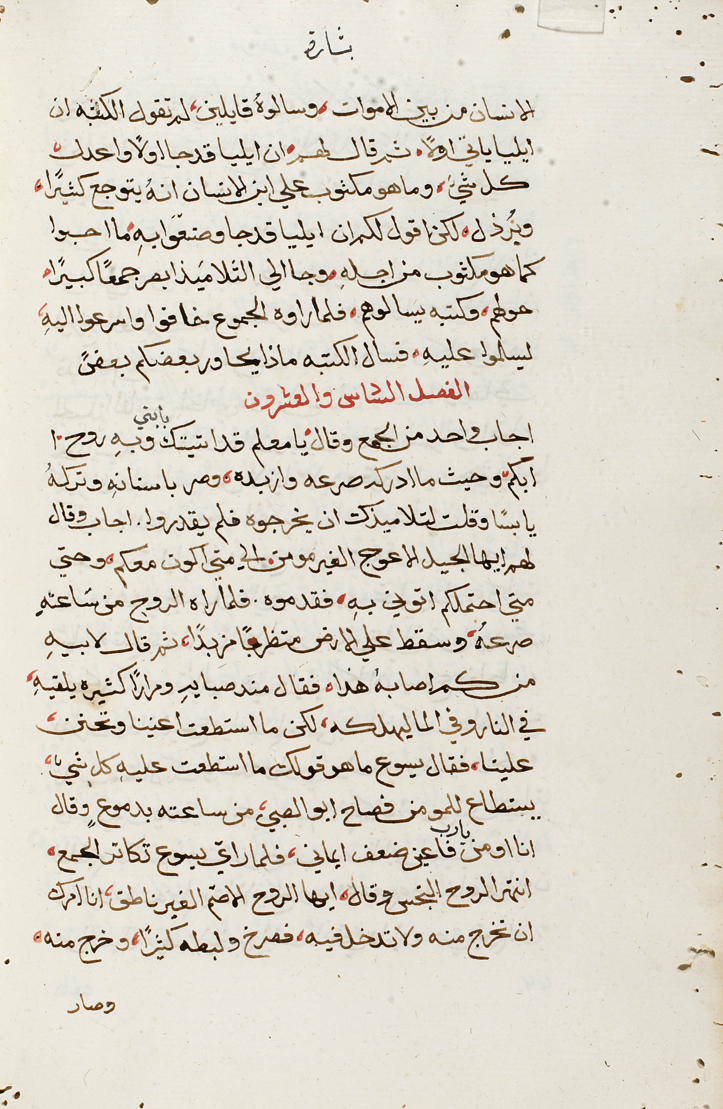 بشارة
الانسان من بين الاموات، وسالوهُ قايلين، لم تقول الكتبه ان
ايليا ياتي اولًا، ثم قال لهم، ان ايليا قد جا اولًا واعد لك
كل شي، وما هو مكتوب علي ابن الانسان انهُ يتوجع كثيرًا،
ويُرذل، لكن اقول لكم ان ايليا قد جا وصنعوا بهِ، ما احبوا
كما هو مكتوب من اجلهِ، وجا الي التلاميذ ابصر جمعًا كبيرًا،
حولهم، وكتبه يسالوهم، فلما راوه الجموع خافوا واسرعوا اليهِ،
ليسلموا عليهِ، فسال الكتبه ماذا يحاور بعضكم بعضً
الفصل السادس والعشرون
اجاب واحد من الجمع وقال، يا معلم قد اتيتك بابني وبهِ روح ا
ابكم، وحيث ما ادركه صرعه وازبده، وصر باسنانهِ وتركهُ
يابسًا وقلت لتلاميذك ان يخرجوه فلم يقدروا. اجاب وقال
لهم ايها الجيل الاعوج الغير مومن، الي متي اكون معكم، وحتي
متي احتملكم اتوني بهِ، فقدموه. فلما راه الروح من سَاعتهِ
صرعهُ، وسقط علي الارض متطرحًا مزبدًا، ثم قال لابيهِ
من كم اصابهُ هذا، فقال منذ صبايهِ ومرارًا كثيره يلقيهِ،
في النار وفي الما ليهلكه، لكن ما استطعت اعنينا وتحنن،
علينا، فقال يسوع ما هو قولك ما استطعت عليهِ كل شي،
يستطاع للمومن فصاح ابو الصبي، من ساعته بدموعٍ وقال
انا اومن يارب فاعن ضعف ايماني، فلما راي يسوع تكاتر الجمع،
انتهر الروح النجس وقال، ايها الروح الاصم الغير ناطق، انا امرك
ان تخرج منه ولا تدخل فيه، فصرخ ولبطه كثيرًا، وخرج منه،
وصار